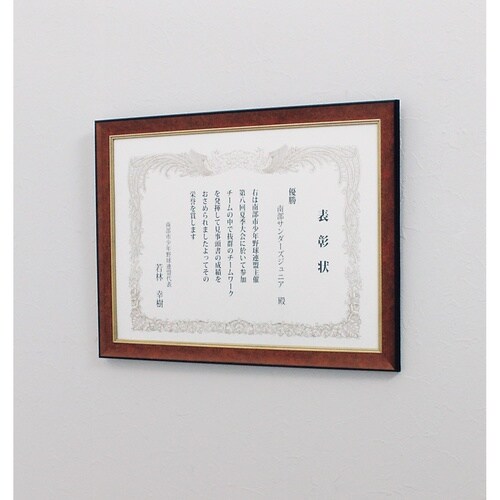 表彰状
優勝
南部サンダーズジュニア 殿
右は南部市少年野球連盟主催
第八回夏季大会に於いて参加
チームの中で抜群のチームワーク
を発揮して見事頭書の成績を
おさめられましたよってその
栄誉を賞します
南部市少年野球連盟代表
若林 幸樹